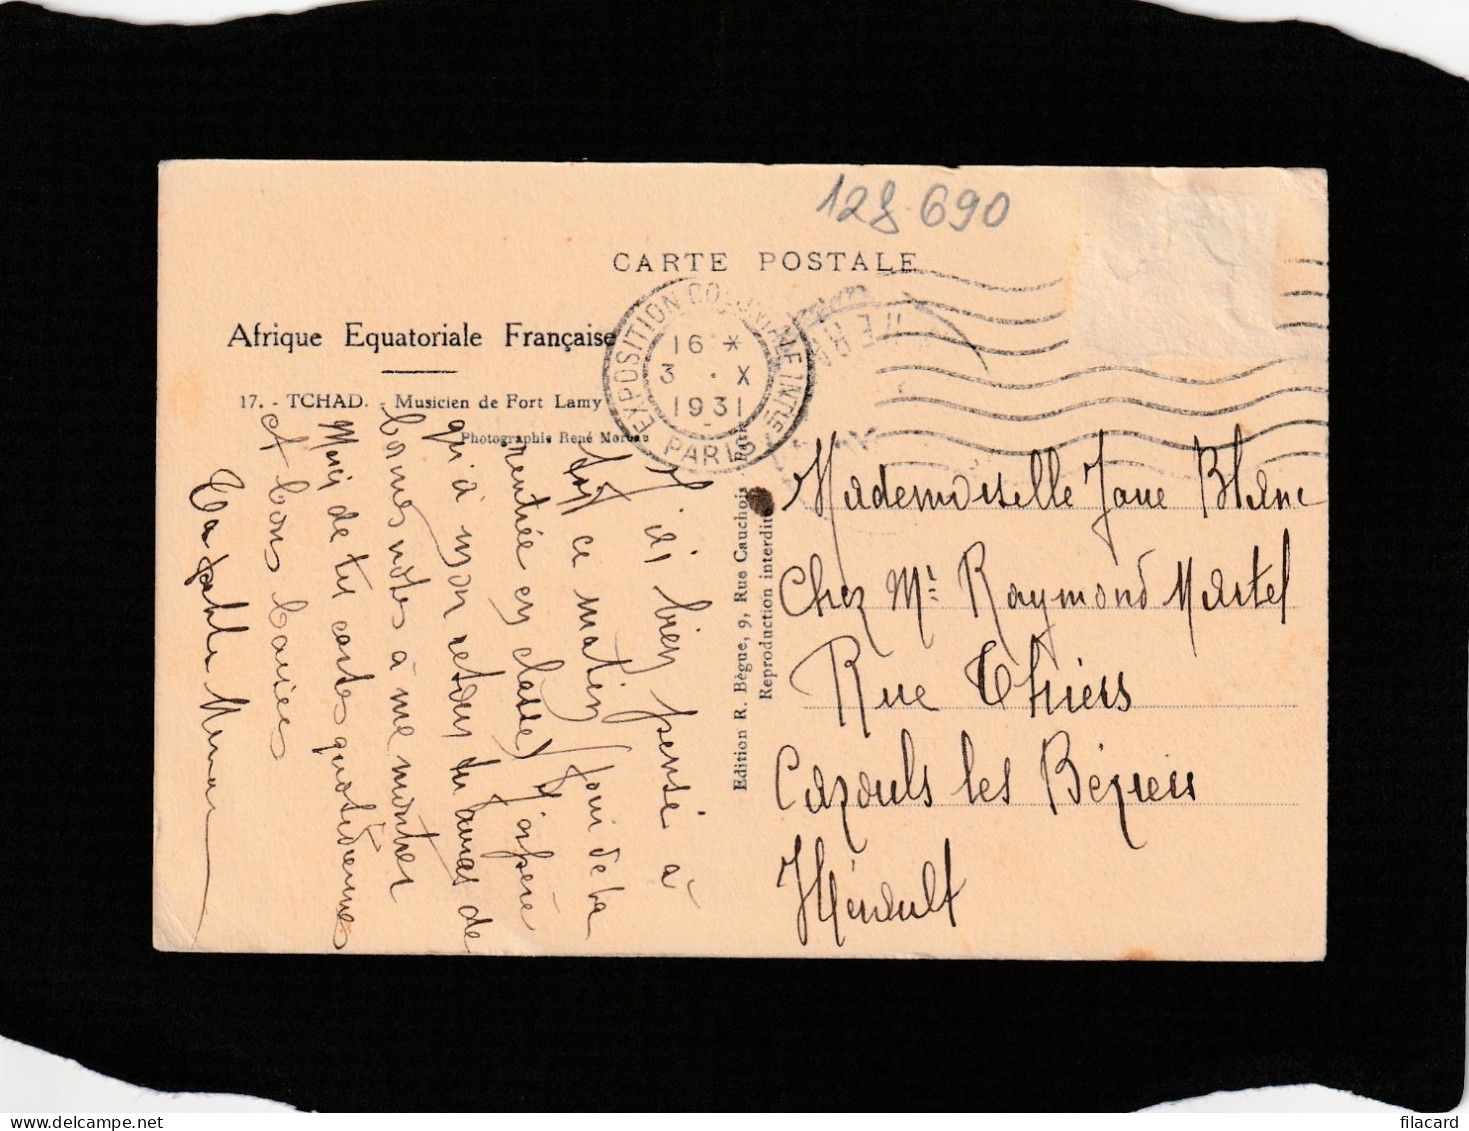 128 690
CARTE POSTALE
Afrique Equatoriale Française
17. - TCHAD. - Musicien de Fort Lamy
Photographie René Moreau
EXPOSITION COLONIALE INTLE
PARIS
16 *
3 · X
1931
Edition R. Bègue, 9, Rue Cauchois - Paris
Reproduction interdite
J'ai bien pensé à
toi ce matin (jour de ta
rentrée en classe) J'espère
qu'à mon retour tu auras de
bonnes notes à me montrer
Merci de tes cartes quotidiennes
et bons baisers
Ta
Mademoiselle Jane Blanc
Chez Mr Raymond Martel
Rue Thiers
Cazouls les Béziers
Hérault
filacard